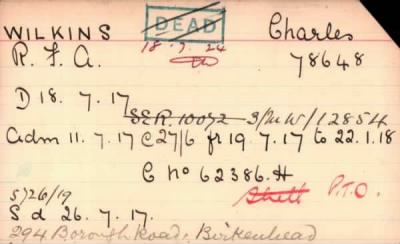 WILKINS DEAD Charles
R. F. A. 18.7.24 78648
D 18. 7. 17
SER 10072 3/MW/12854
Adm 11. 7. 17 C 27/6 fr 19. 7. 17 to 22.1.18
C No 62386. H
P.T.O.
5726/19
S d 26. 7. 17.
294 Borough Road, Birkenhead